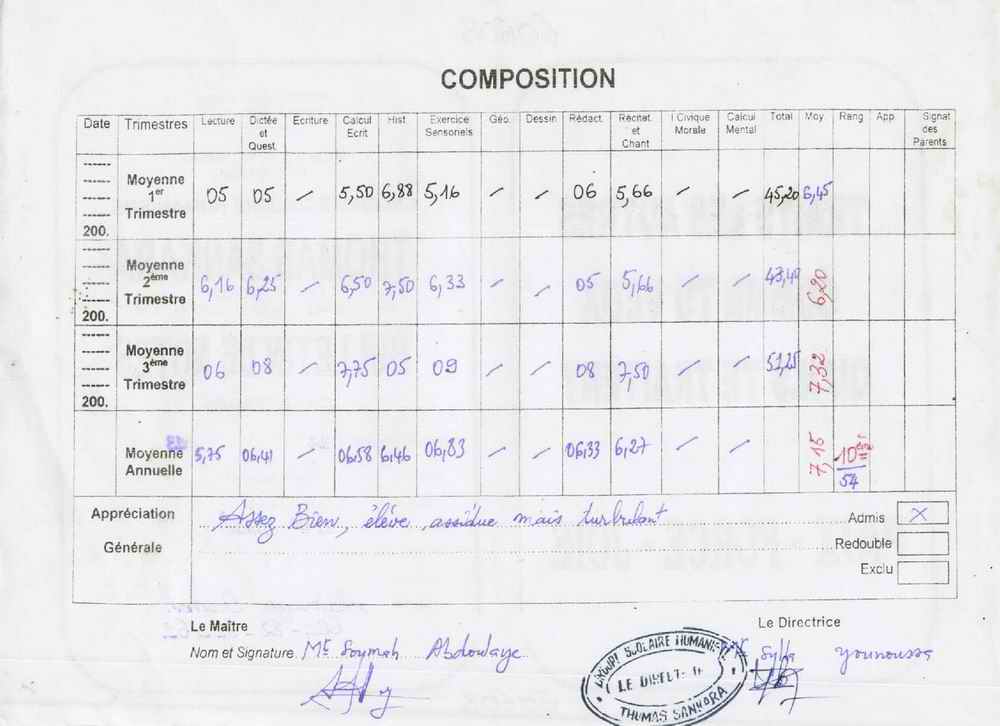 COMPOSITION
Date Trimestres Lecture Dictée et Quest. Ecriture Calcul Ecrit Hist. Exercice Sensoriels Géo. Dessin Rédact. Récitat. et Chant I.Civique Morale Calcul Mental Total Moy Rang App. Signat des Parents
200. Moyenne 1er Trimestre 05 05 / 5,50 6,88 5,16 / / 06 5,66 / / 45,20 6,45
200. Moyenne 2ème Trimestre 6,16 6,25 / 6,50 7,50 6,33 / / 05 5,66 / / 43,40 6,20
200. Moyenne 3ème Trimestre 06 08 / 7,75 05 09 / / 08 7,50 / / 51,25 7,32
Moyenne Annuelle 5,75 06,41 / 06,58 6,46 06,83 / / 06,33 6,27 / / 7,15 10 54
Appréciation Générale
Assez Bien, élève assidue mais turbulant
Admis X
Redouble
Exclu
Le Maître
Nom et Signature Mr Soumah Abdoulaye
Le Directrice
Sylla Younoussa
GROUPE SCOLAIRE HUMANISTE
LE DIRECTEUR
THOMAS SANKARA